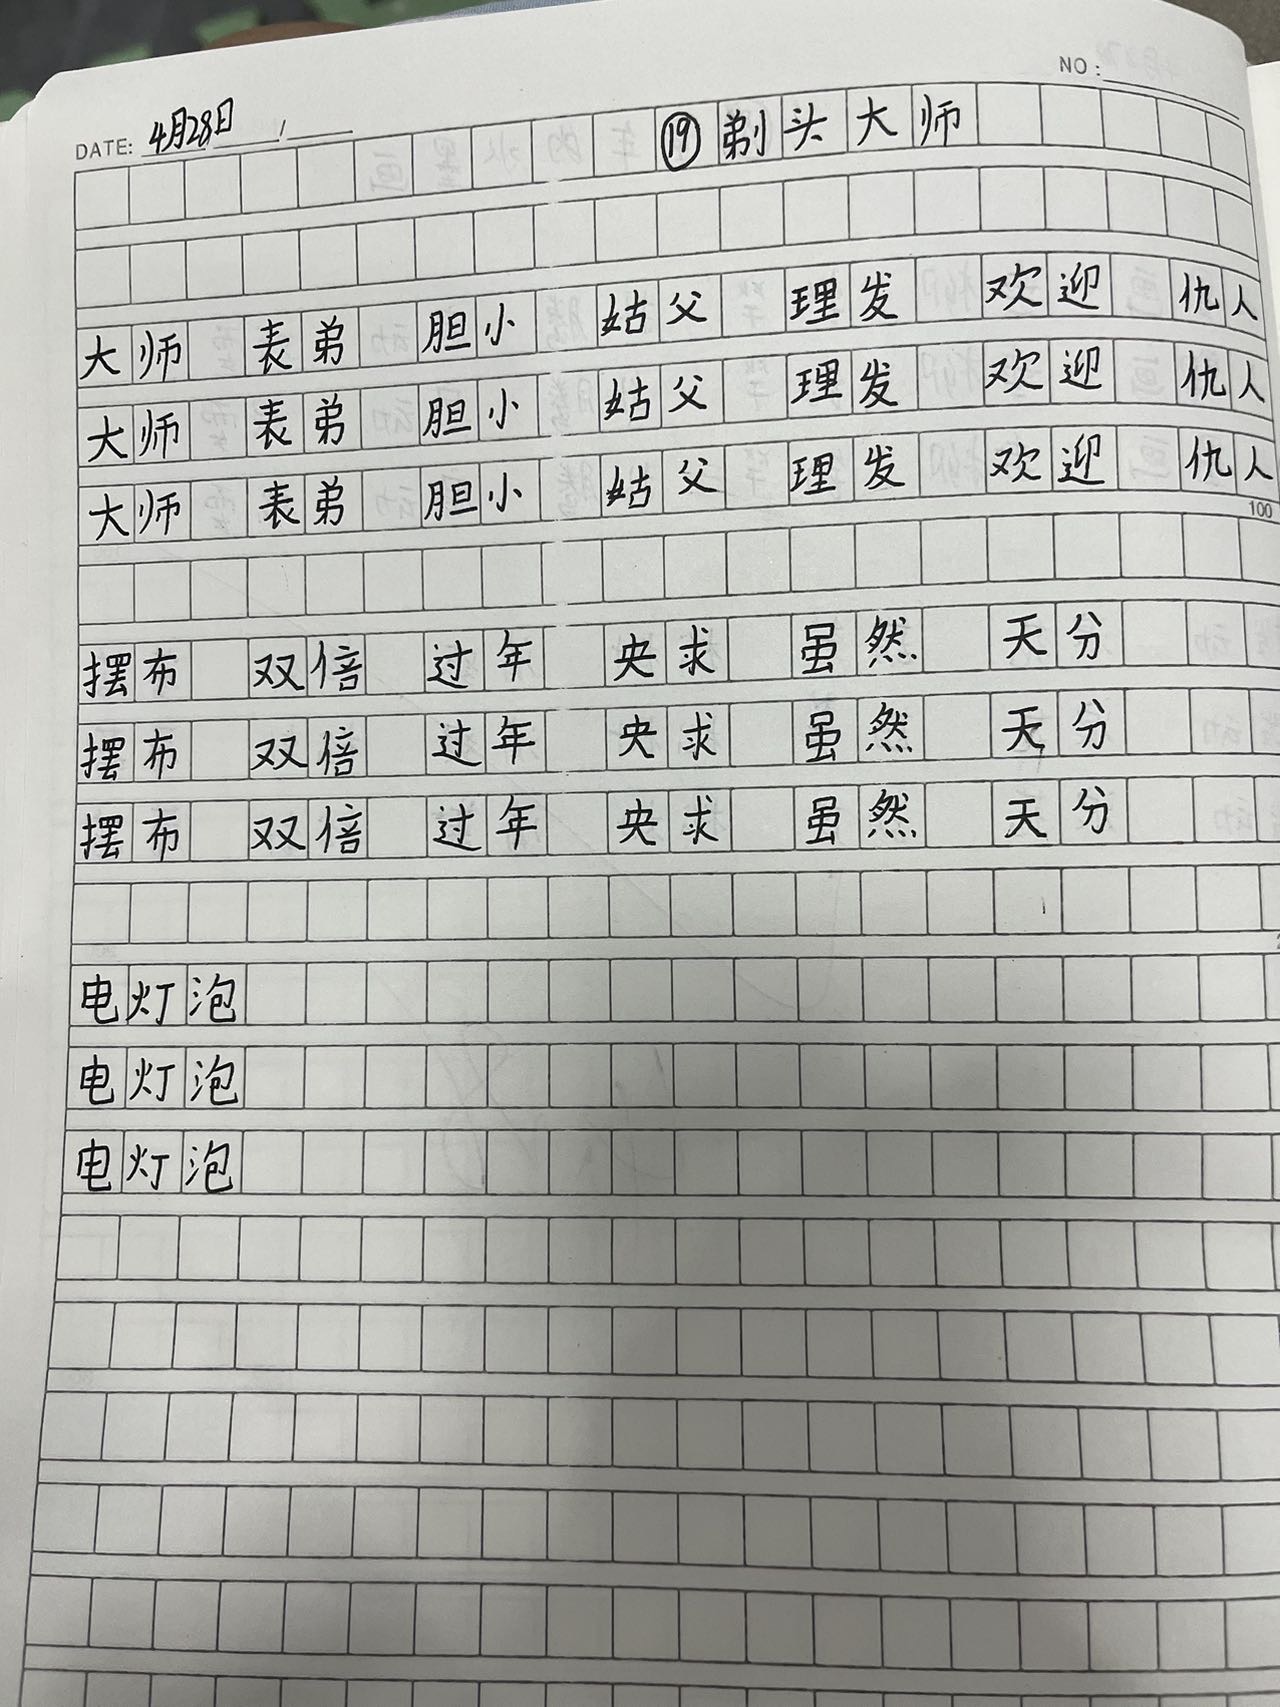 NO:
DATE: 4月28日 /
⑲ 剃头大师
大师 表弟 胆小 姑父 理发 欢迎 仇人
大师 表弟 胆小 姑父 理发 欢迎 仇人
大师 表弟 胆小 姑父 理发 欢迎 仇人
100
摆布 双倍 过年 央求 虽然 天分
摆布 双倍 过年 央求 虽然 天分
摆布 双倍 过年 央求 虽然 天分
电灯泡
电灯泡
电灯泡